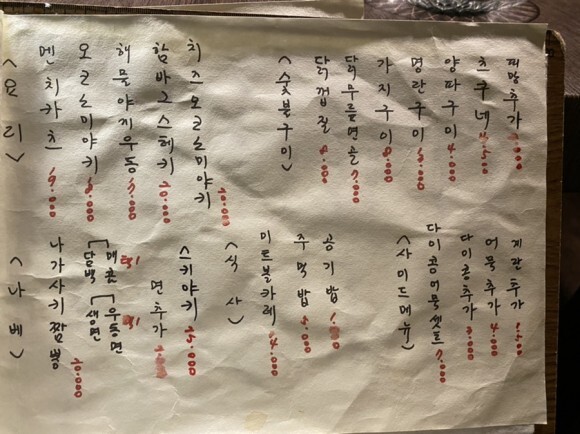 <요리>
멘치카츠 19.000
오코노미야키
해물야끼우동
함바그스테키 20.000
치즈오코노미야키 20.000
<숯불구이>
닭껍질 8.000
닭무릎연골 9.000
가지구이 8.000
명란구이
양파구이 4.000
츠쿠네 4.500
피망추가
<나베>
나가사키짬뽕 20.000
[매콤 담백 택1
[우동면 생면 택1
면추가
스키야키 25.000
<식사>
미트볼카레 14.000
주먹밥
공기밥 1.000
<사이드메뉴>
다이콤어묵셋트 7.000
다이콩추가
어묵추가 4.000
계란추가 1.500